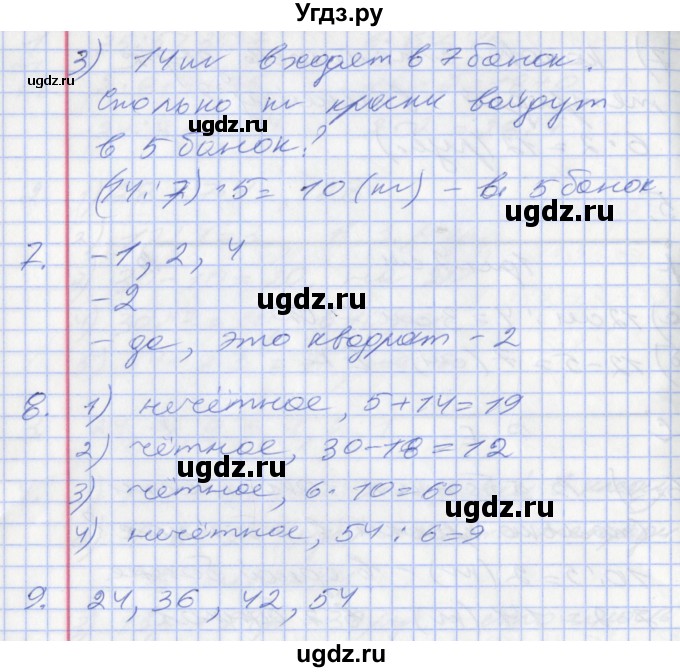 Угдз.ру
3) 14 т входят в 7 банок.
Сколько т краски войдут
в 5 банок?
(14 : 7) · 5 = 10 (т) - в 5 банок.
7. - 1, 2, 4
- 2
- да, это квадрат - 2
8. 1) нечётное, 5+14=19
2) чётное, 30-18=12
3) чётное, 6 · 10 = 60
4) нечётное, 54 : 6=9
9. 24, 36, 42, 54
ugdz.ru
ugdz.ru
ugdz.ru
ugdz.ru
ugdz.ru
ugdz.ru
ugdz.ru
ugdz.ru
ugdz.ru
Угдз.ру